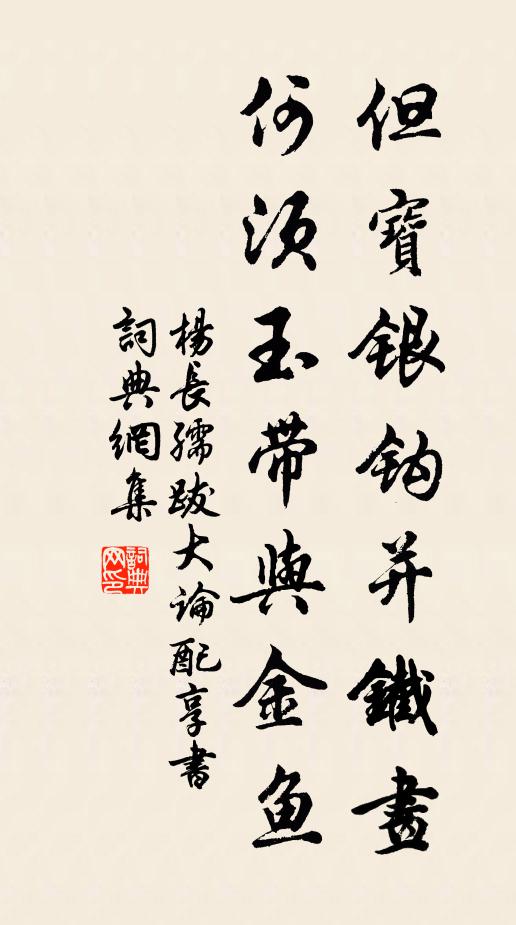 但寶銀鈎并鐵畫
何須玉帶與金魚
楊長孺跋大論配享書
詞典網集
詞典网印